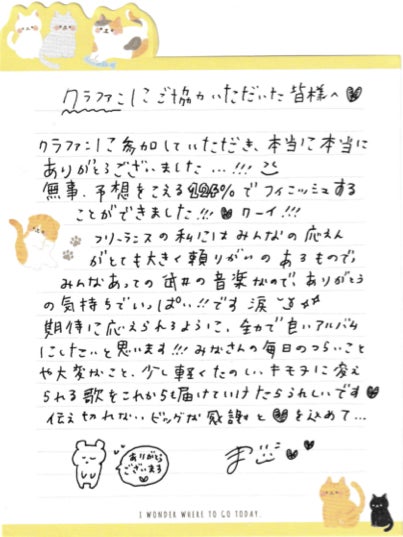 クラファンにご協力いただいた皆様へ
クラファンに参加していただき、本当に本当に
ありがとうございました…!!!
無事、予想をこえる124%でフィニッシュする
ことができました!!! ワーイ!!!
フリーランスの私にはみんなの応えん
がとても大きく頼りがいのあるもので、
みんなあっての の音楽なので、ありがとう
の気持ちでいっぱい!!です 涙
期待に応えられるように、全力で良いアルバム
にしたいと思います!!! みなさんの毎日のつらいこと
や大変なこと、少し軽くたのしいキモチに変え
られる歌をこれからも届けていけたらうれしいです
伝え切れないビッグな感謝と を込めて…
ありがとう
ございまる
I WONDER WHERE TO GO TODAY.